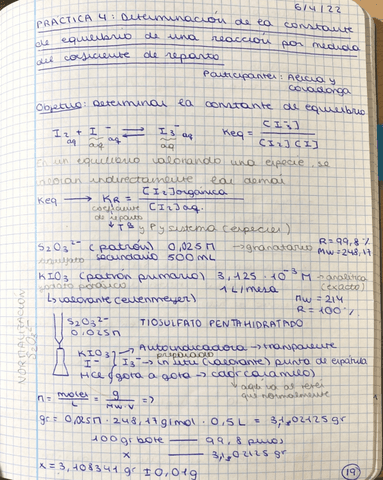 6/4/22
PRÁCTICA 4: Determinación de la constante
de equilibrio de una reacción por medida
del coeficiente de reparto
Participantes: Alicia y
Covadonga
Objetivo: Determinar la constante de equilibrio
I₂ + I⁻ ⇌ I₃⁻ Keq = [I₃⁻] / [I₂] [I]
aq aq aq
En un equilibrio valorando una especie, se
valoran indirectamente las demás
Keq → KR = [I₂]orgánica / [I₂]aq.
coeficiente
de reparto
↓ Tª y P y sistema (especies)
S₂O₃²⁻ (patrón) 0,025M → granatario R = 99,8%
tiosulfato secundario 500 mL Mw = 248,17
KIO₃ (patrón primario) 3,125 · 10⁻³ M → analítica
(exacto)
1 L/mesa
Mw = 214
↳ valorante (erlenmeyer) R = 100%
NORMALIZACIÓN
S₂O₃²⁻
0,025M
TIOSULFATO PENTAHIDRATADO
KIO₃ Autoindicadora → transparente
I⁻ I₃⁻ → in situ (valorante) punta de espátula
HCl (gota a gota → color caramelo)
↓ aquí va al revés
que normalmente
M = moles / L = g / Mw · V =>
gr = 0,025M · 248,17 g/mol · 0,5 L = 3,102125 gr
100 gr bote —— 99,8 puros
x —— 3,102125 gr
x = 3,108341 gr ± 0,01g
19